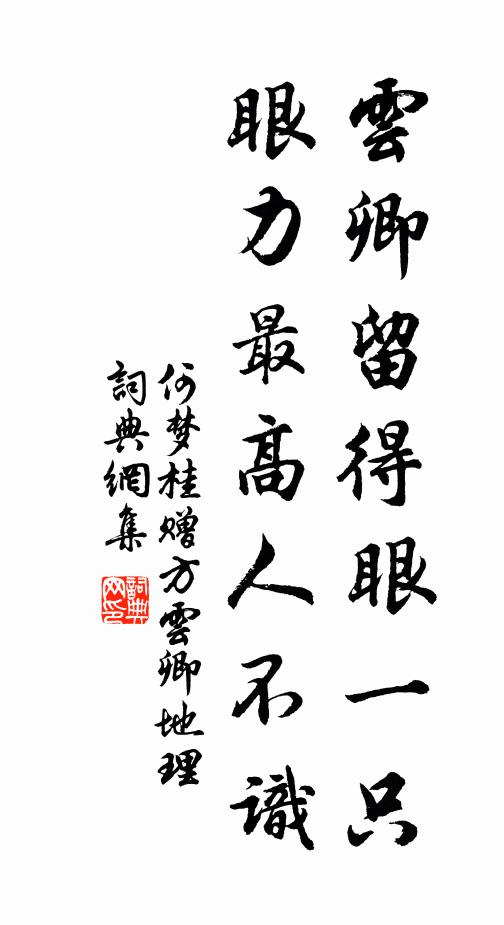 雲卿留得眼一只
眼力最高人不識
何梦桂赠方雲卿地理
詞典網集
詞典网印